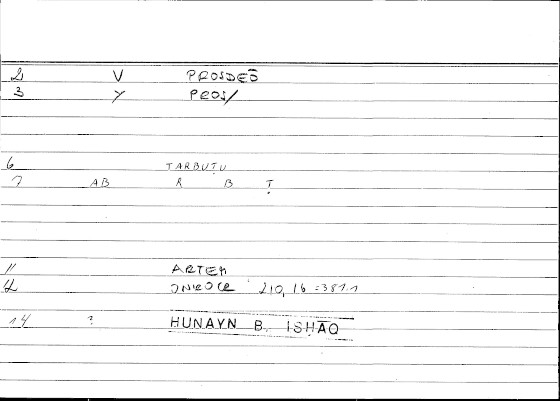 2 V PROSDEŌ
3 Y PROS/
6 TARBUṬU
7 AB R B Ṭ
11 ARTEM
12 210, 16 = 381.1
14 ? HUNAYN B. ISḤĀQ